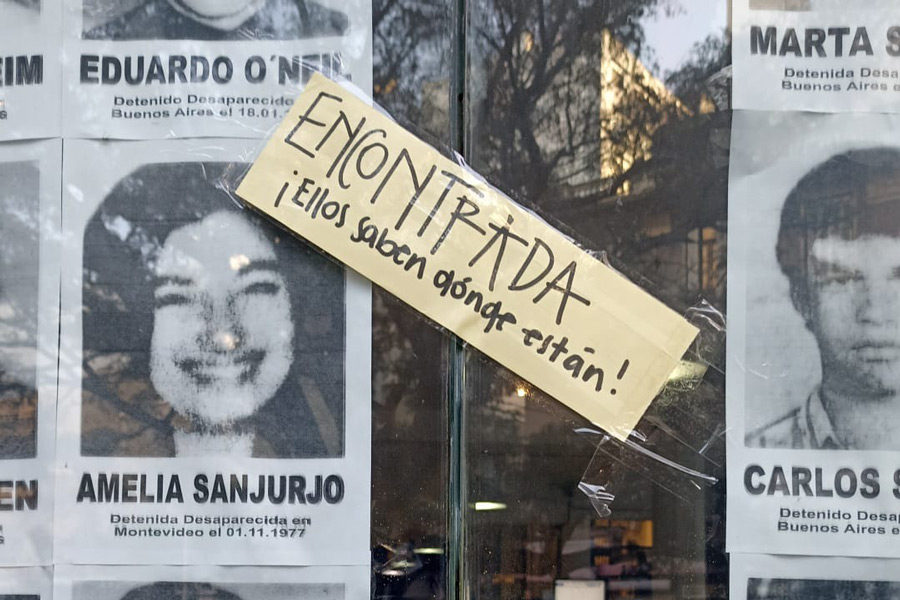 EIM
EDUARDO O'NEIL
Detenido Desaparecido
Buenos Aires el 18.01.
MARTA S
Detenida Desa
Buenos Aires e
ENCONTRADA
¡Ellos saben dónde están!
EN
s
AMELIA SANJURJO
Detenida Desaparecida en
Montevideo el 01.11.1977
CARLOS S
Detenido Desap
Buenos Aires e